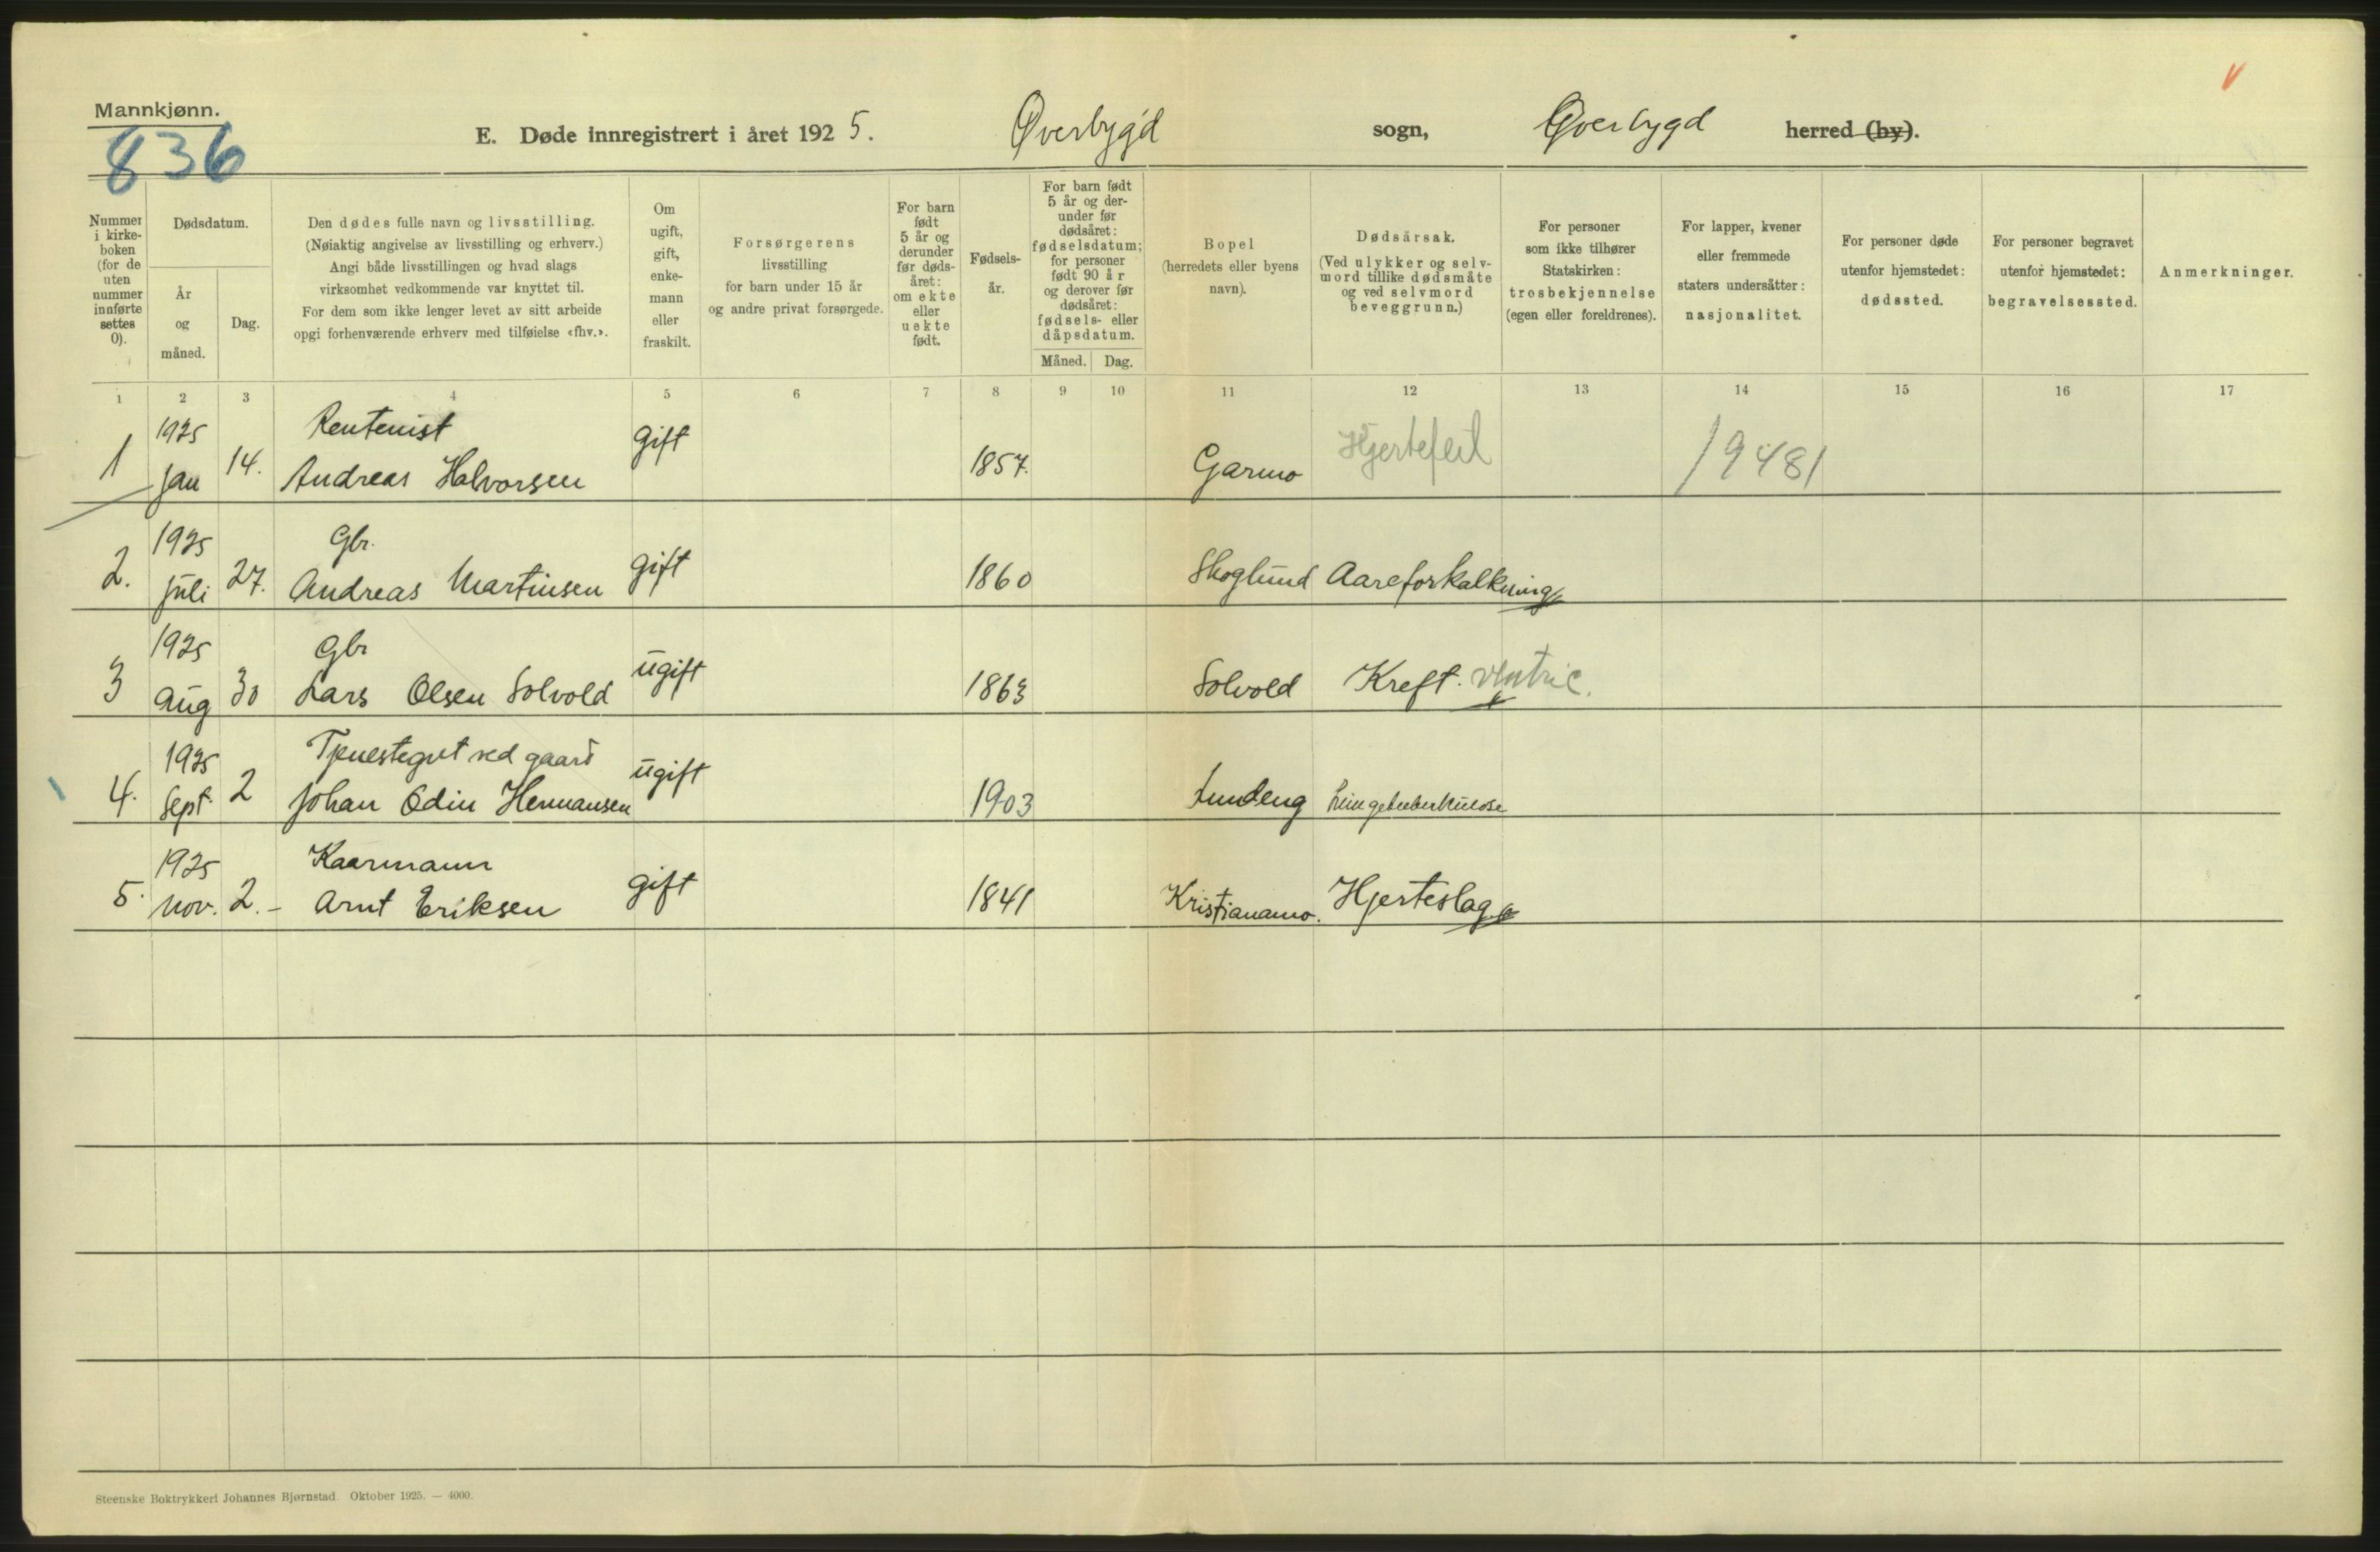 Mannkjønn.
836
E. Døde innregistrert i året 1925. Øverbygd sogn, Øverbygd herred (by).
Nummer i kirke-boken (for de uten nummer innførte settes 0).
Dødsdatum.
År og måned.
Dag.
Den dødes fulle navn og livsstilling.
(Nøiaktig angivelse av livsstilling og erhverv.)
Angi både livsstillingen og hvad slags
virksomhet vedkommende var knyttet til.
For dem som ikke lenger levet av sitt arbeide
opgi forhenværende erhverv med tilføielse «fhv.».
Om ugift, gift, enke-mann eller fraskilt.
Forsørgerens
livsstilling
for barn under 15 år
og andre privat forsørgede.
For barn født 5 år og derunder før døds-året: om ekte eller uekte født.
Fødsels-år.
For barn født 5 år og der-under før dødsåret: fødselsdatum; for personer født 90 år og derover før dødsåret: fødsels- eller dåpsdatum.
Måned. Dag.
Bopel
(herredets eller byens
navn).
Dødsårsak.
(Ved ulykker og selv-
mord tillike dødsmåte
og ved selvmord
beveggrunn.)
For personer
som ikke tilhører
Statskirken:
trosbekjennelse
(egen eller foreldrenes).
For lapper, kvener
eller fremmede
staters undersåtter:
nasjonalitet.
For personer døde
utenfor hjemstedet:
dødssted.
For personer begravet
utenfor hjemstedet:
begravelsessted.
Anmerkninger.
1 2 3 4 5 6 7 8 9 10 11 12 13 14 15 16 17
1925 Rentenist
1 Jan 14. Andreas Halvorsen gift 1857. Garmo Hjertefeil 19481
1925 Gbr.
2. Juli 27. Andreas Martinsen gift 1860 Skoglund Aareforkalkning
1925 Gbr
3 Aug 30 Lars Olsen Solvold ugift 1863 Solvold Kreft.
1925 Tjenestegut ved gaard
4. Sept. 2 Johan Odin Hermansen ugift 1903 Lundeng Lungetuberkulose
1925 Kaarmann
5. Nov. 2.- Arnt Eriksen gift 1841 Kristianamo. Hjerteslag
Steenske Boktrykkeri Johannes Bjørnstad. Oktober 1925. — 4000.